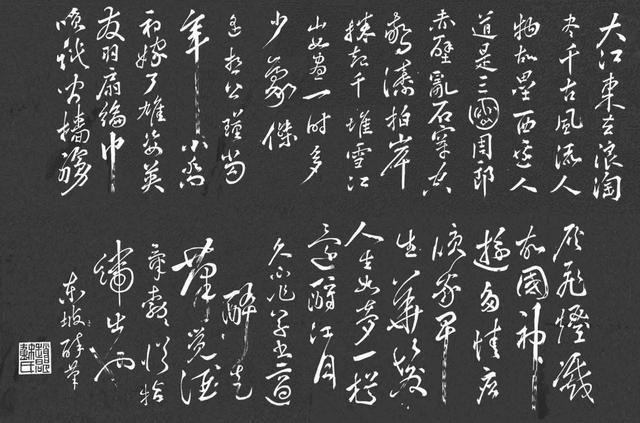 大江東去浪淘
尽千古風流人
物故壘西邊人
道是三國周郎
赤壁亂石穿空
驚濤拍岸
捲起千堆雪江
山如畫一時多
少豪傑
遙想公瑾當
年小喬
初嫁了雄姿英
发羽扇綸巾
談笑間檣艣
灰飛燈滅
故國神
遊多情應
笑我早
生華髮
人生如夢一樽
還酹江月
久不作草書適
醉走
筆覺酒
氣勃勃從指
端出也
東坡醉筆